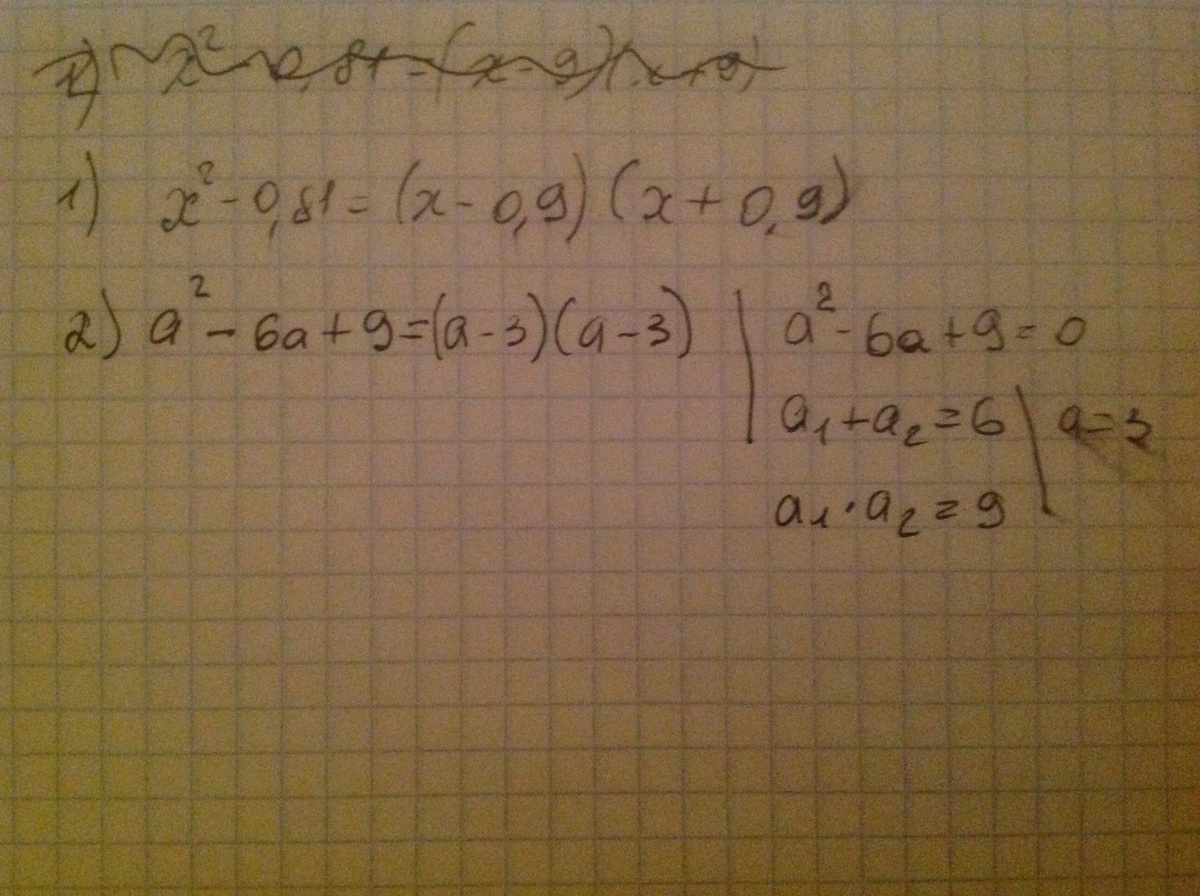 1) x² - 0,81 = (x - 9)(x + 9)
1) x² - 0,81 = (x - 0,9) (x + 0,9)
2) a² - 6a + 9 = (a - 3)(a - 3) | a² - 6a + 9 = 0
a₁ + a₂ = 6 \ a = 3
a₁ · a₂ = 9